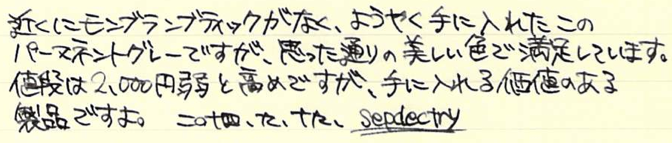 近くにモンブランブティックがなく、ようやく手に入れたこの
パーマネントグレーですが、思った通りの美しい色で満足しています。
値段は2,000円弱と高めですが、手に入れる価値のある
製品ですよ。 二〇十四、た、十た、 sepdectry